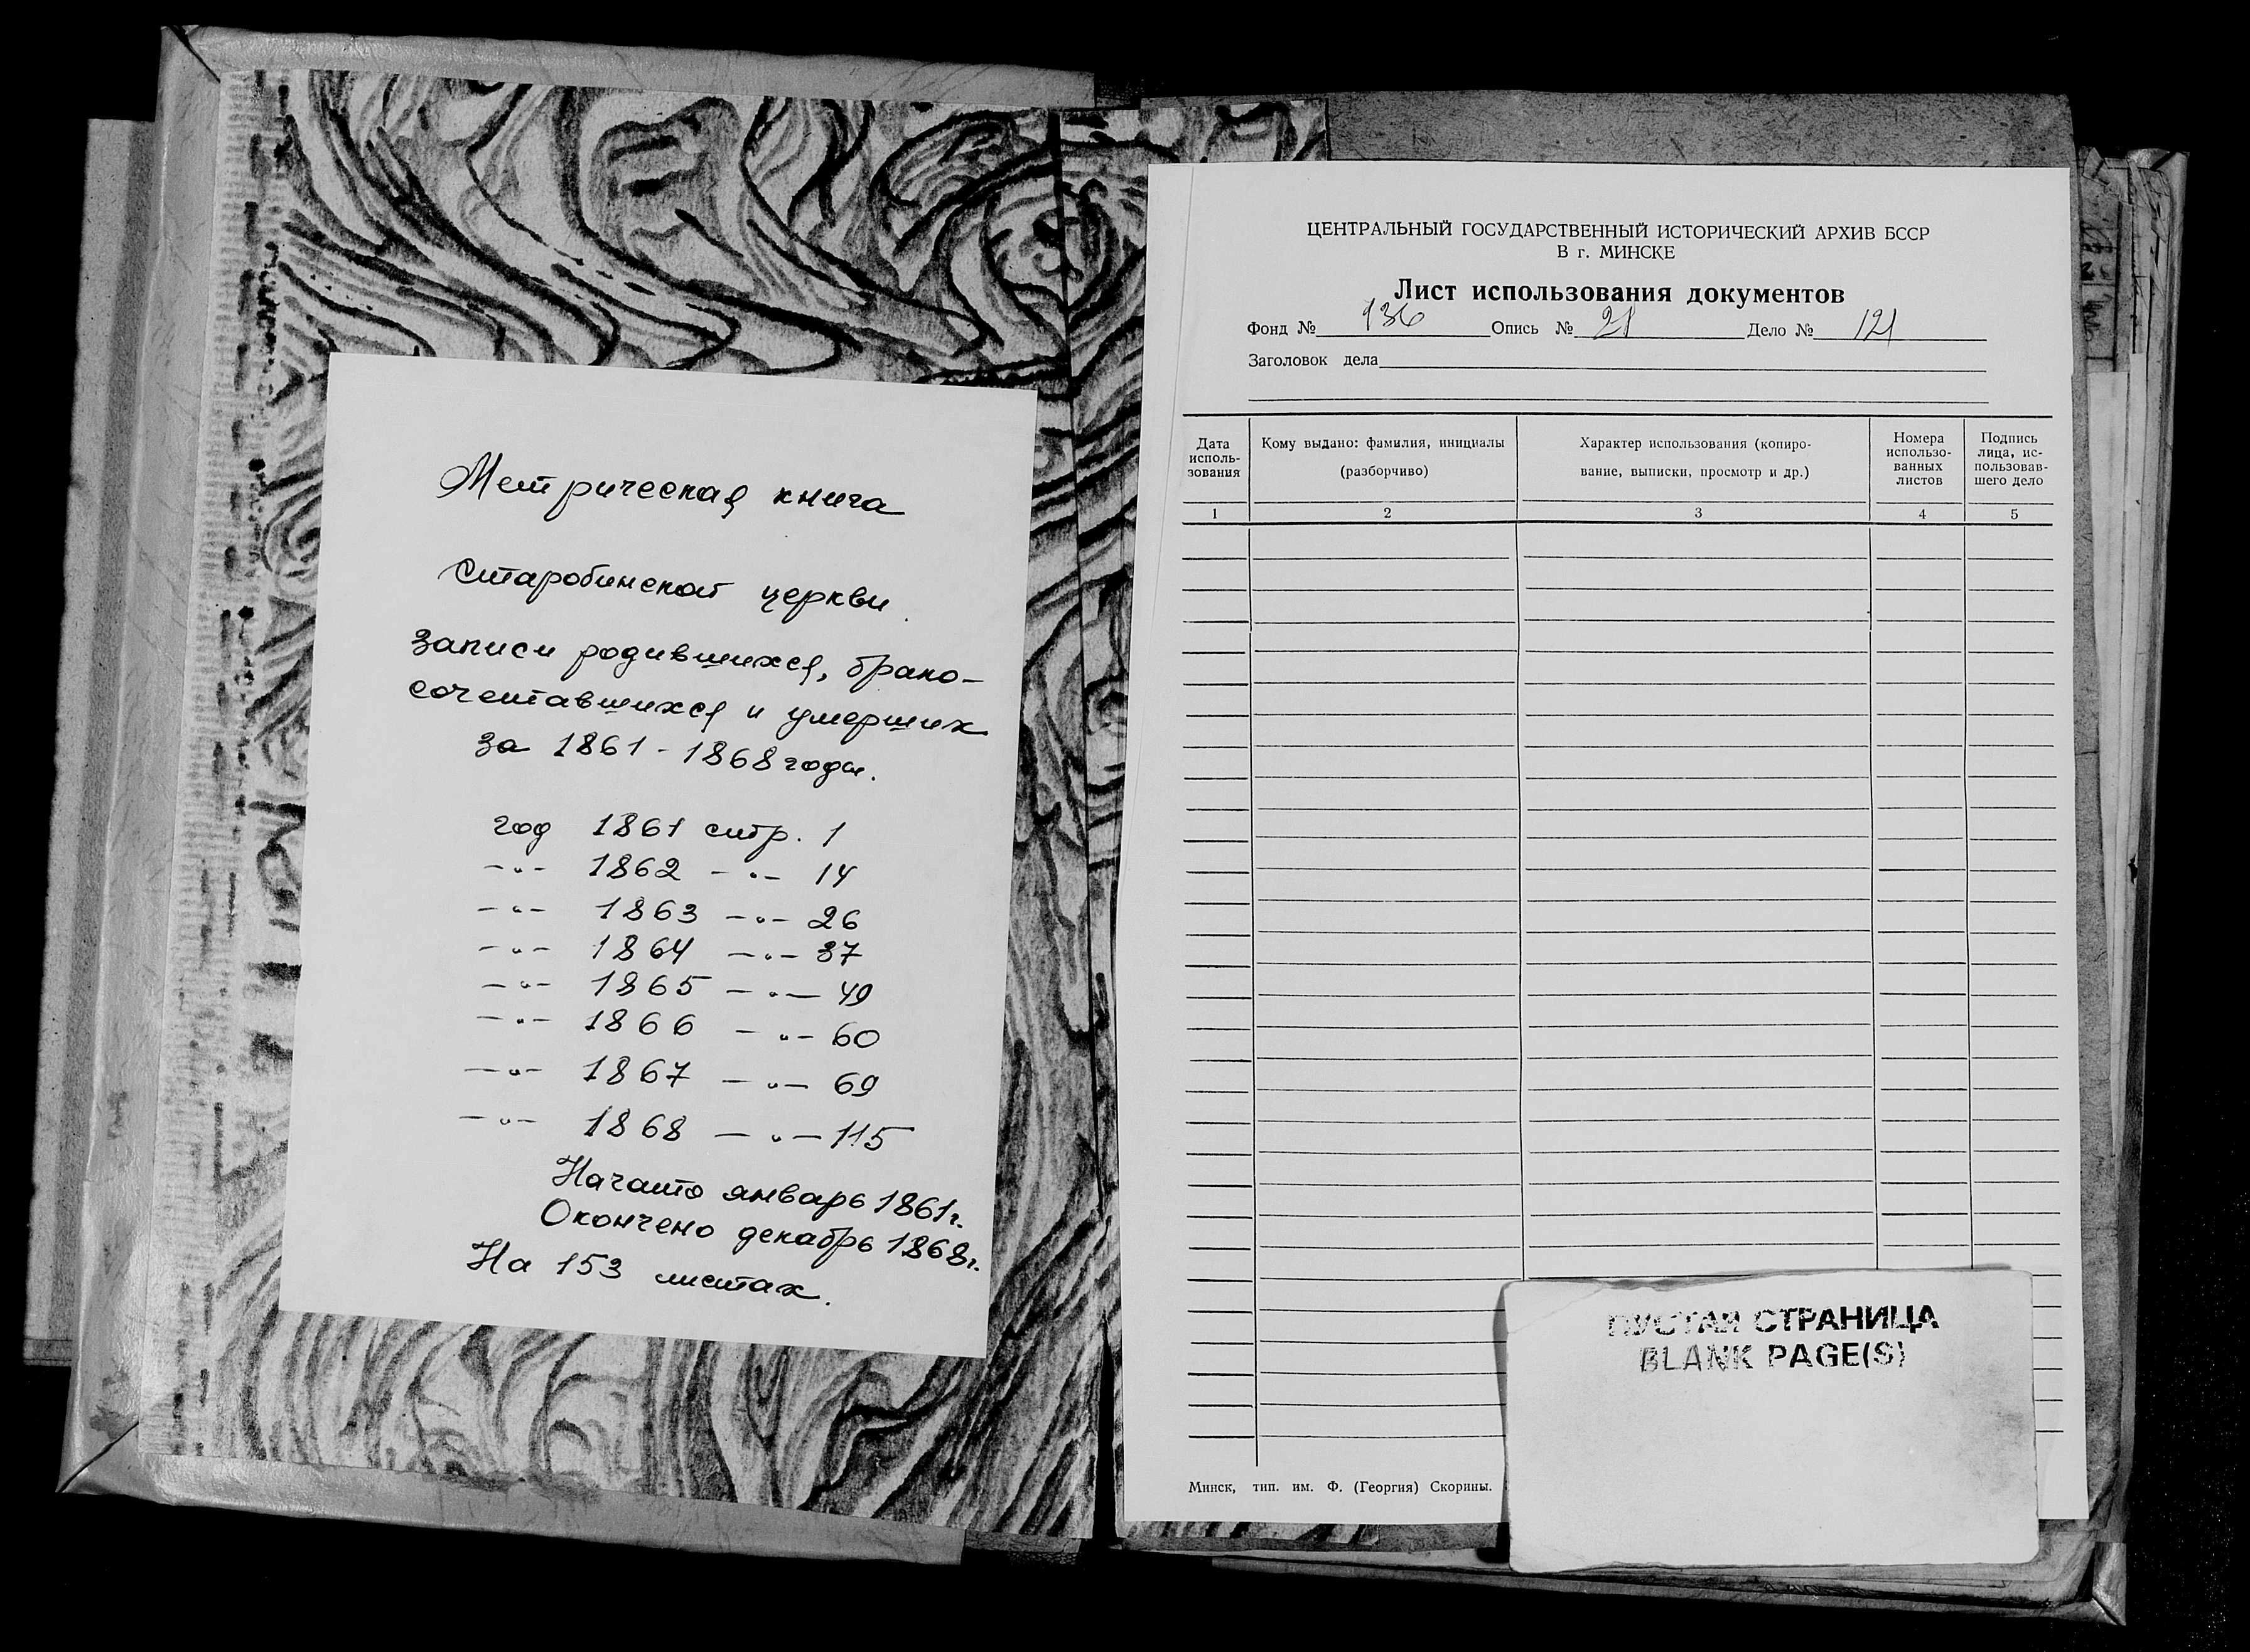 Метрическая книга
Старобинской церкви.
Записи родившихся, брако-
сочетавшихся и умерших
за 1861 - 1868 годы.
год 1861 стр. 1
-"- 1862 -"- 14
-"- 1863 -"- 26
-"- 1864 -"- 37
-"- 1865 -"- 49
-"- 1866 -"- 60
-"- 1867 -"- 69
-"- 1868 -"- 115
Начато январь 1861г.
Окончено декабрь 1868г.
На 153 листах.
ЦЕНТРАЛЬНЫЙ ГОСУДАРСТВЕННЫЙ ИСТОРИЧЕСКИЙ АРХИВ БССР
В г. МИНСКЕ
Лист использования документов
Фонд № 136 Опись № 21 Дело № 121
Заголовок дела
Дата
исполь-
зования
Кому выдано: фамилия, инициалы
(разборчиво)
Характер использования (копиро-
вание, выписки, просмотр и др.)
Номера
использо-
ванных
листов
Подпись
лица, ис-
пользовав-
шего дело
1 2 3 4 5
ПУСТАЯ СТРАНИЦА
BLANK PAGE(S)
Минск, тип. им. Ф. (Георгия) Скорины.